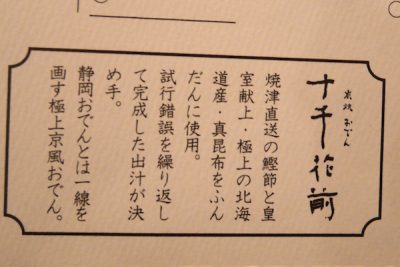 炭焼 おでん
十千花前
焼津直送の鰹節と皇
室献上・極上の北海
道産・真昆布をふん
だんに使用。
試行錯誤を繰り返し
て完成した出汁が決
め手。
静岡おでんとは一線を
画す極上京風おでん。